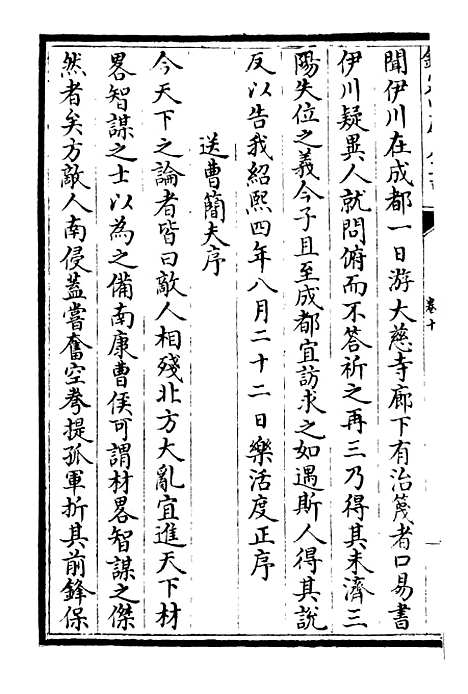 卷十
聞伊川在成都一日游大慈寺廊下有治篾者口易書
伊川疑異人就問俯而不答祈之再三乃得其未濟三
陽失位之義今子且至成都宜訪求之如遇斯人得其說
反以告我紹熙四年八月二十二日樂活度正序
送曹簡夫序
今天下之論者皆曰敵人相殘北方大亂宜進天下材
畧智謀之士以為之備南康曹侯可謂材畧智謀之傑
然者矣方敵人南侵蓋嘗奮空拳提孤軍折其前鋒保